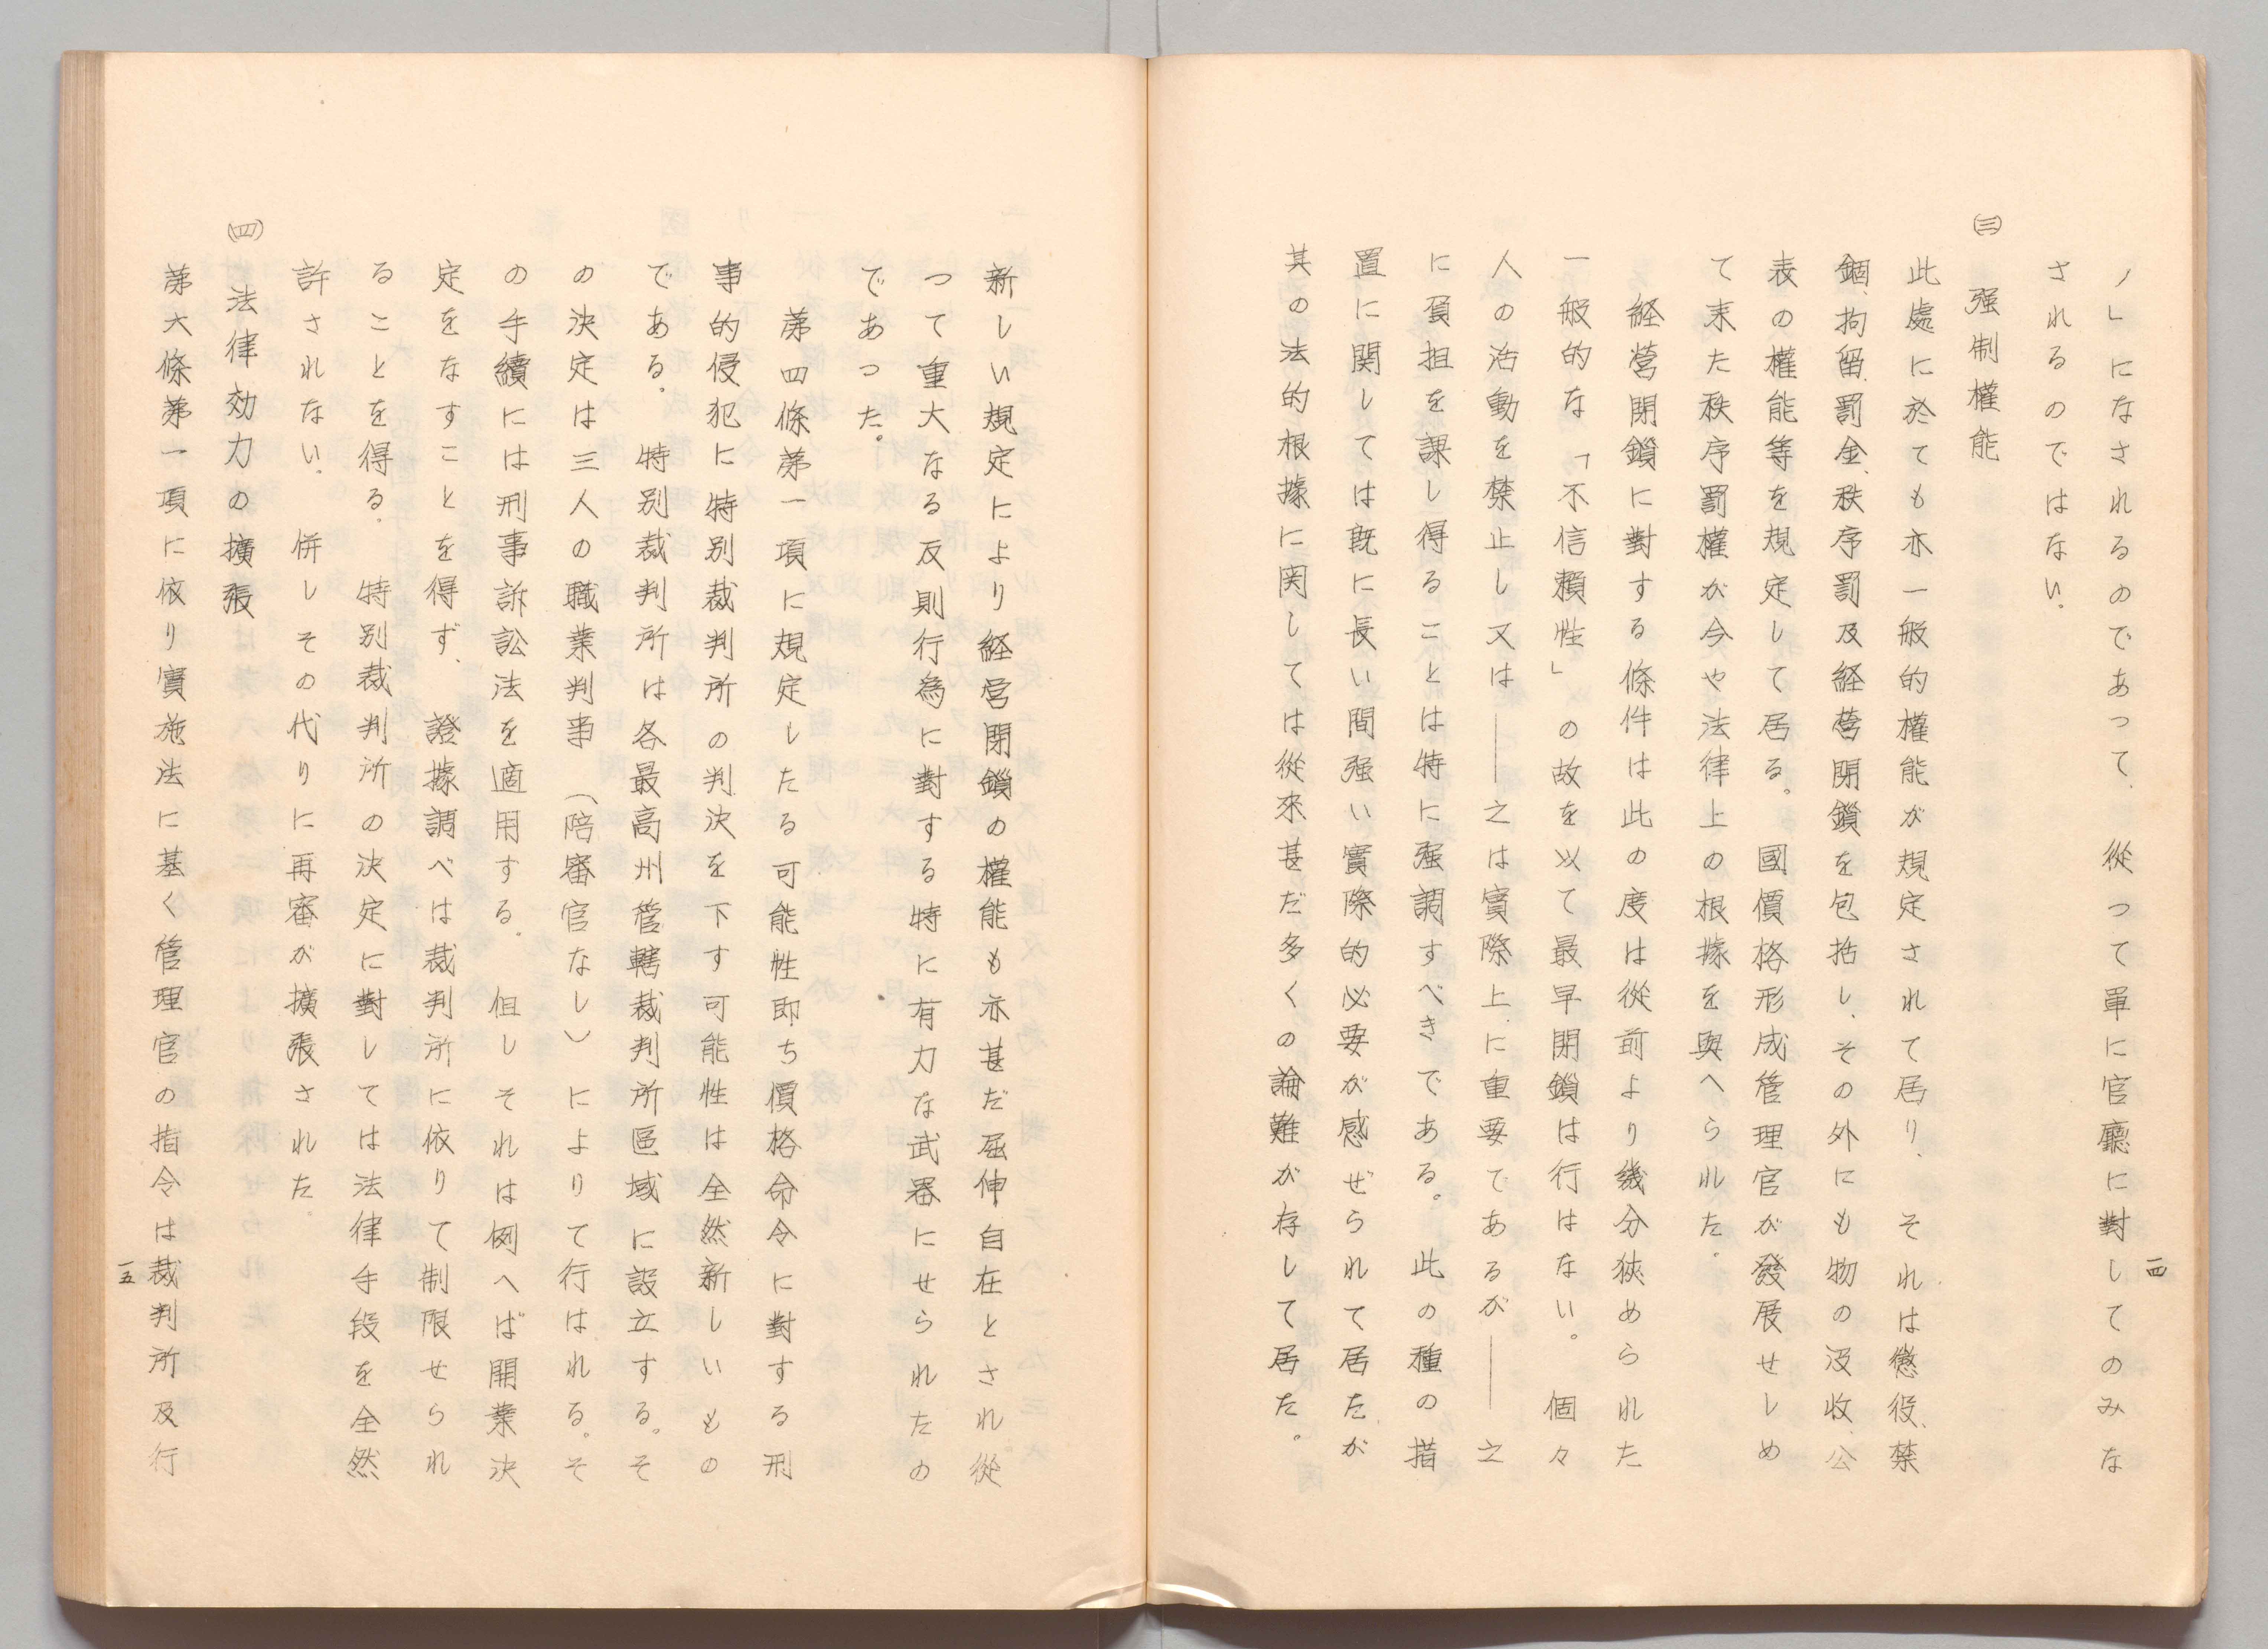 ノ」になされるのであつて、從つて單に官廳に對してのみな
されるのではない。
㈢　强制權能
此處に於ても亦一般的權能が規定されて居り、それは懲役、禁
錮、拘留、罰金、秩序罰及経営閉鎖を包括し、その外にも物の沒收、公
表の權能等を規定して居る。國價格形成管理官が發展せしめ
て来た秩序罰權が今や法律上の根據を與へられた。
経營閉鎖に對する條件は此の度は從前より幾分狹められた
一般的な「不信賴性」の故を以て最早閉鎖は行はない。個々
人の活動を禁止し又は――之は實際上に重要であるが――之
に負担を課し得ることは特に强調すべきである。此の種の措
置に関しては既に長い間强い實際的必要が感ぜられて居たが
其の法的根據に関しては從來甚だ多くの論難が存して居た。
一四
新しい規定により経営閉鎖の權能も亦甚だ屈伸自在とされ從
つて重大なる反則行為に對する特に有力な武器にせられたの
であつた。
第四條第一項に規定したる可能性即ち價格命令に對する刑
事的侵犯に特別裁判所の判決を下す可能性は全然新しいもの
である。特別裁判所は各最高州管轄裁判所區域に設立する。そ
の決定は三人の職業判事（陪審官なし）によりて行はれる。そ
の手續には刑事訴訟法を適用する。但しそれは例へば開業決
定をなすことを得ず、證據調べは裁判所に依りて制限せられ
ることを得る。特別裁判所の決定に對しては法律手段を全然
許されない。併しその代りに再審が擴張された。
㈣　法律効力の擴張
第大條第一項に依り實施法に基く管理官の指令は裁判所及行
一五